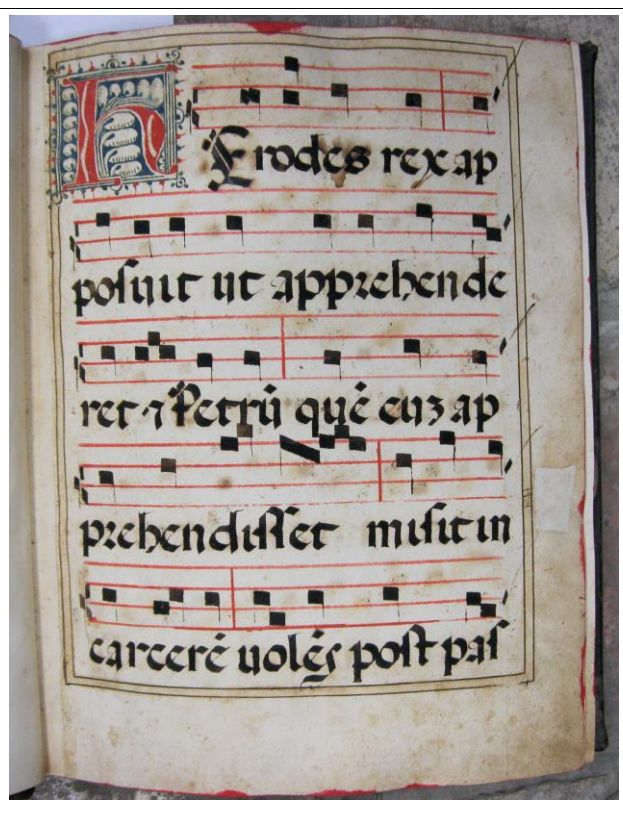 HErodes rex ap
posuit ut apprehende
ret ⁊ Petrū quē euz ap
prehendisset misit in
carcerē uolēs post pas